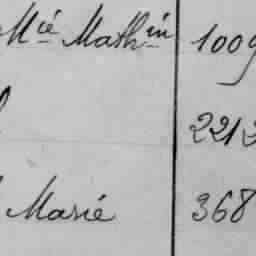 Mié Mathin 1009
221
Marie 368